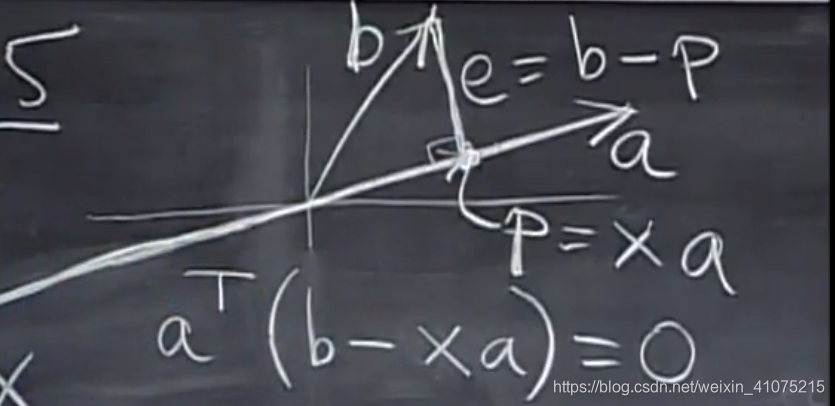 5
b
e = b - p
a
p = x a
aᵀ (b - x a) = 0
x
https://blog.csdn.net/weixin_41075215